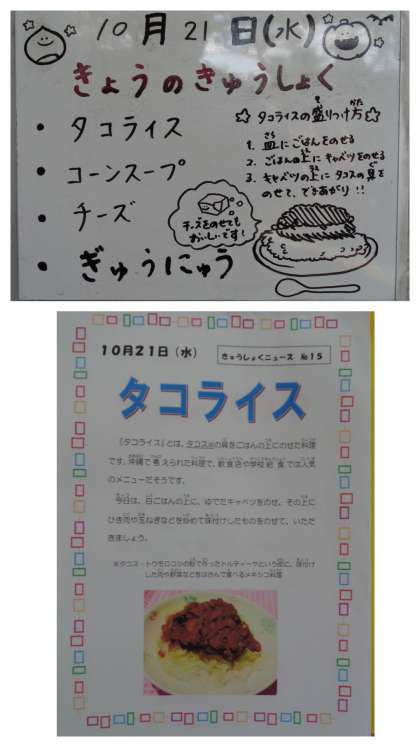 10月21日(水)
きょうのきゅうしょく
・タコライス
・コーンスープ
・チーズ
・ぎゅうにゅう
☆タコライスの盛りつけ方☆
1. 皿にごはんをのせる
2. ごはんの上にキャベツをのせる
3. キャベツの上にタコスの具を
のせて、できあがり!!
チーズをのせても
おいしいです!
10月21日(水)
きゅうしょくニュース №15
タコライス
『タコライス』とは、タコス※の具をごはんの上にのせた料理
です。沖縄で考えられた料理で、飲食店や学校給食では人気
のメニューだそうです。
今日は、白ごはんの上に、ゆでたキャベツをのせ、その上に
ひき肉や玉ねぎなどを炒めて味付けしたものをのせて、いただ
きましょう。
※タコス・トウモロコシの粉で作ったトルティーヤという皮に、味付け
した肉や野菜などをはさんで食べるメキシコ料理